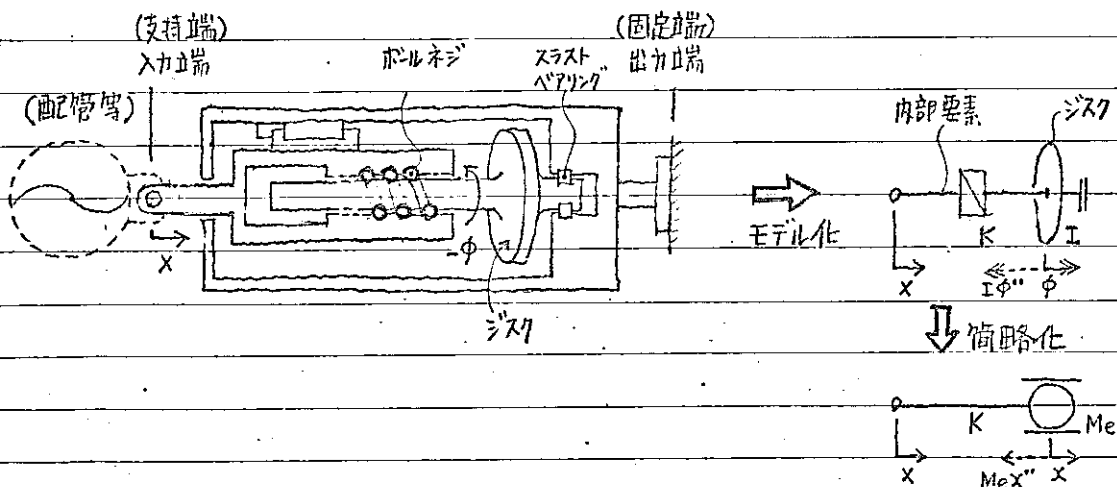 (支持端)
入力端
(配管等)
ボールネジ
スラスト
ベアリング
(固定端)
出力端
X
-φ
ジスク
モデル化
内部要素
ジスク
K
I
X
Iφ"
φ
簡略化
K
Me
X
MeX"
X